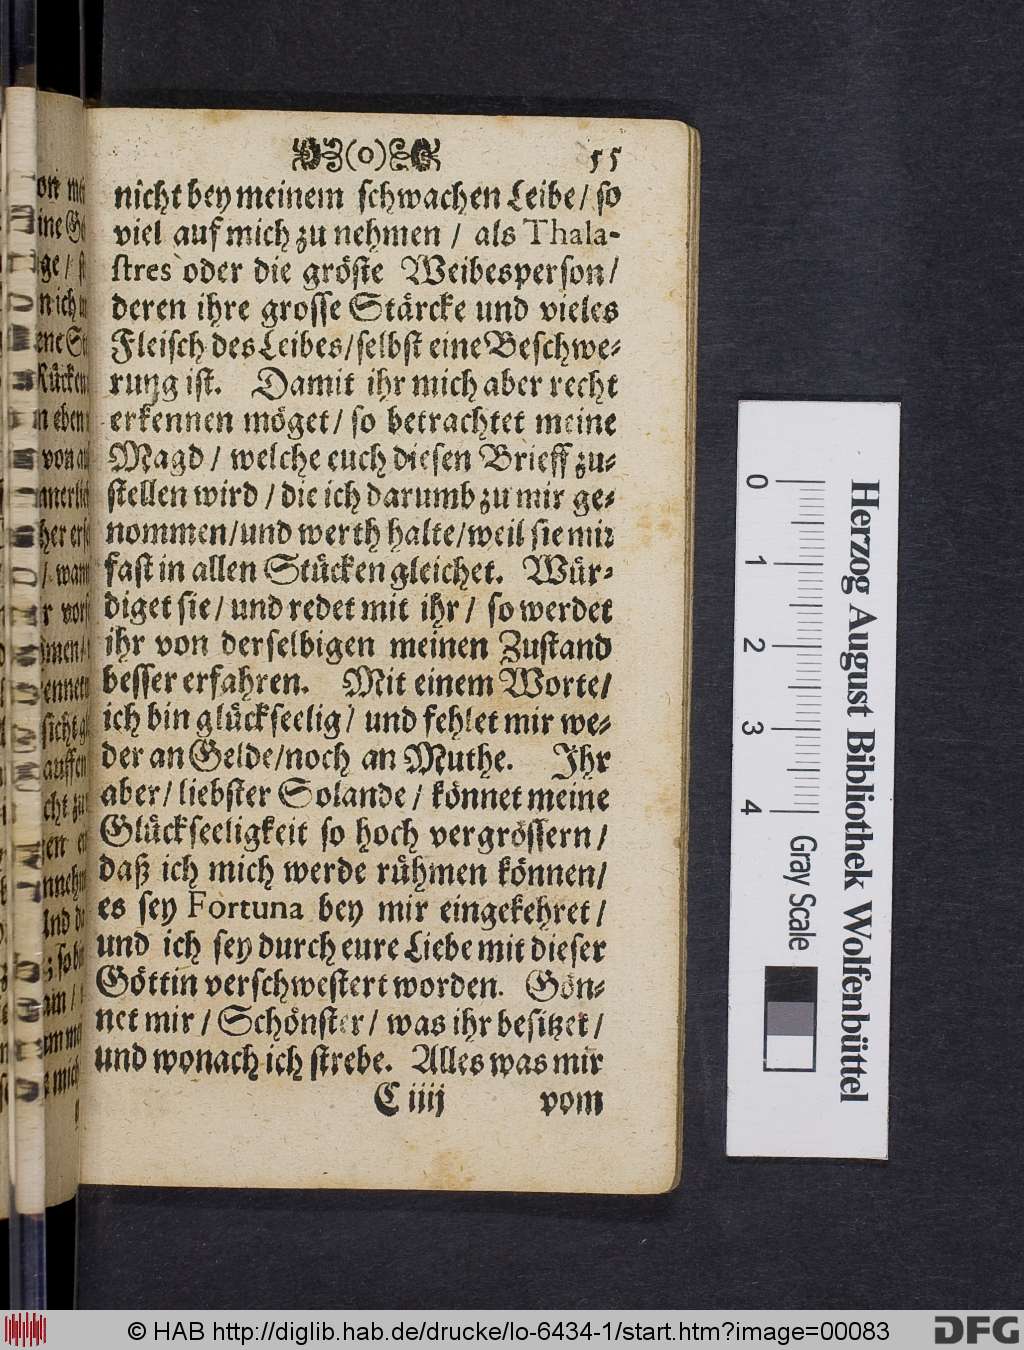 (o) 55
nicht bey meinem schwachen Leibe/ so
viel auf mich zu nehmen / als Thala-
stres oder die gröste Weibesperson/
deren ihre grosse Stärcke und vieles
Fleisch des Leibes/selbst eine Beschwe-
rung ist. Damit ihr mich aber recht
erkennen möget/ so betrachtet meine
Magd / welche euch diesen Brieff zu-
stellen wird / die ich darumb zu mir ge-
nommen/und werth halte/weil sie mir
fast in allen Stücken gleichet. Wür-
diget sie/ und redet mit ihr/ so werdet
ihr von derselbigen meinen Zustand
besser erfahren. Mit einem Worte/
ich bin glückseelig/ und fehlet mir we-
der an Gelde/noch an Muthe. Ihr
aber/ liebster Solande/ könnet meine
Glückseeligkeit so hoch vergrössern/
daß ich mich werde rühmen können/
es sey Fortuna bey mir eingekehret/
und ich sey durch eure Liebe mit dieser
Göttin verschwestert worden. Gön-
net mir/ Schönster/ was ihr besitzet/
und wonach ich strebe. Alles was mir
C iiij vom
0 1 2 3 4 Gray Scale
Herzog August Bibliothek Wolfenbüttel
© HAB http://diglib.hab.de/drucke/lo-6434-1/start.htm?image=00083
DFG